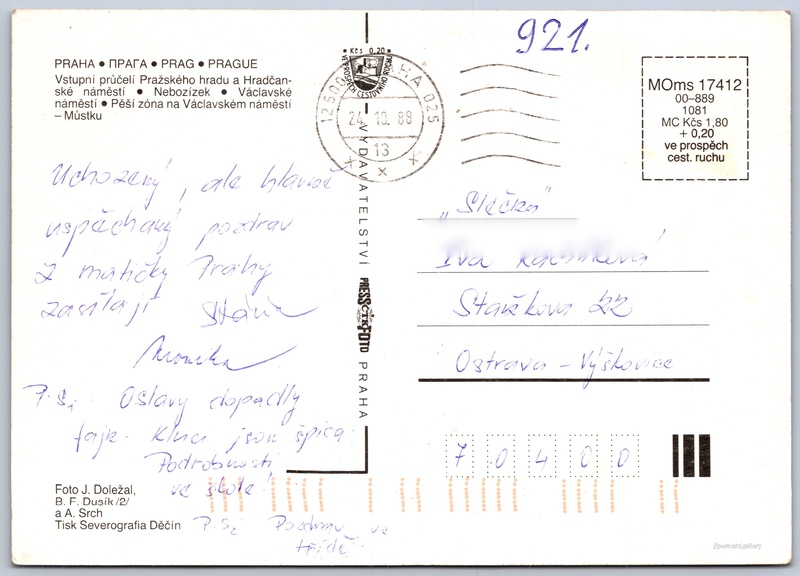 921.
PRAHA ● ПРАГА ● PRAG ● PRAGUE
Vstupní průčelí Pražského hradu a Hradčan-
ské náměstí ● Nebozízek ● Václavské
náměstí ● Pěší zóna na Václavském náměstí
– Můstku
Kčs 0,20
VE PROSPĚCH CESTOVNÍHO RUCHU
PRAHA 025
24.10.88
13
MOms 17412
00–889
1081
MC Kčs 1,80
+ 0,20
ve prospěch
cest. ruchu
Uchozený, ale hlavně
uspěchaný pozdrav
z matičky Prahy
zasílají
Monika
P.S.1 Oslavy dopadly
fajn. Kluci jsou špica.
Podrobnosti
ve škole!
P.S.2 Pozdravuj ve
třídě.
VYDAVATELSTVÍ PRESSFOTO PRAHA
„Slečna"
Iva
22
Ostrava – Výškovice
70400
Foto J. Doležal,
B. F. Dusík /2/
a A. Srch
Tisk Severografia Děčín